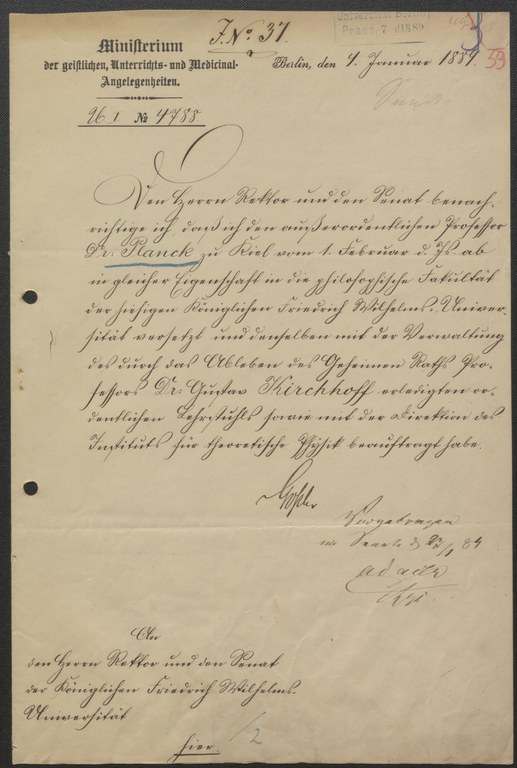 J. No 37.
Ministerium
der geistlichen, Unterrichts- und Medicinal-
Angelegenheiten.
Berlin, den 4. Januar 1889.
53
Universität Berlin
1889
U I № 4788
Den Herrn Rektor und den Senat benach-
richtige ich, daß ich den außerordentlichen Professor
Dr. Planck zu Kiel vom 1. Februar d. Js. ab
in gleicher Eigenschaft in die philosophische Fakultät
der hiesigen Königlichen Friedrich Wilhelms-Univer-
sität versetzt und denselben mit der Verwaltung
des durch das Ableben des Geheimen Raths Pro-
fessors Dr. Gustav Kirchhoff erledigten or-
dentlichen Lehrstuhls sowie mit der Direktion des
Instituts für theoretische Physik beauftragt habe.
Goßler
Vorgetragen
im Senate d
ad acta
An
den Herrn Rektor und den Senat
der Königlichen Friedrich Wilhelms-
Universität
hier.